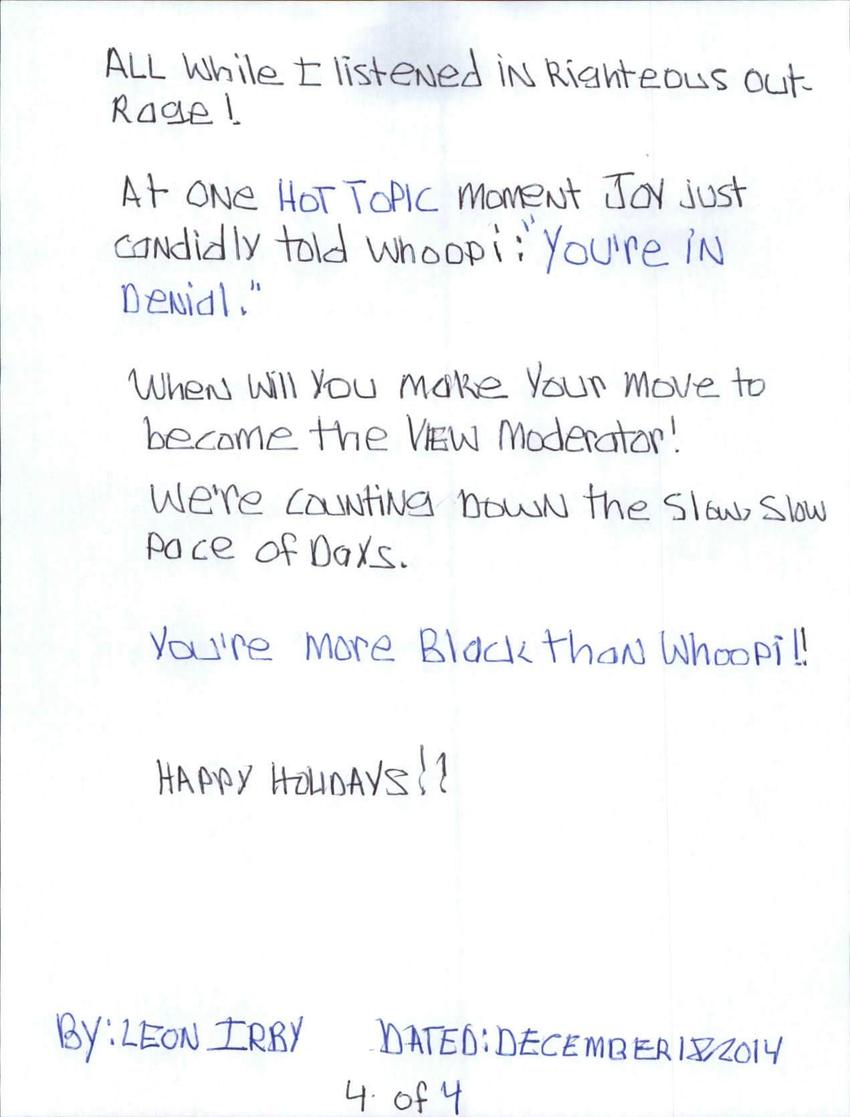 ALL While I listened in Righteous out-
Rage!
At one HOT TOPIC moment Joy just
candidly told Whoopi: "You're in
Denial."
When will you make your move to
become the VIEW Moderator!
We're counting Down the slow, slow
pace of Days.
You're more Black than Whoopi!!
HAPPY HOLIDAYS!!
BY: LEON IRBY DATED: DECEMBER 18/2014
4 of 4